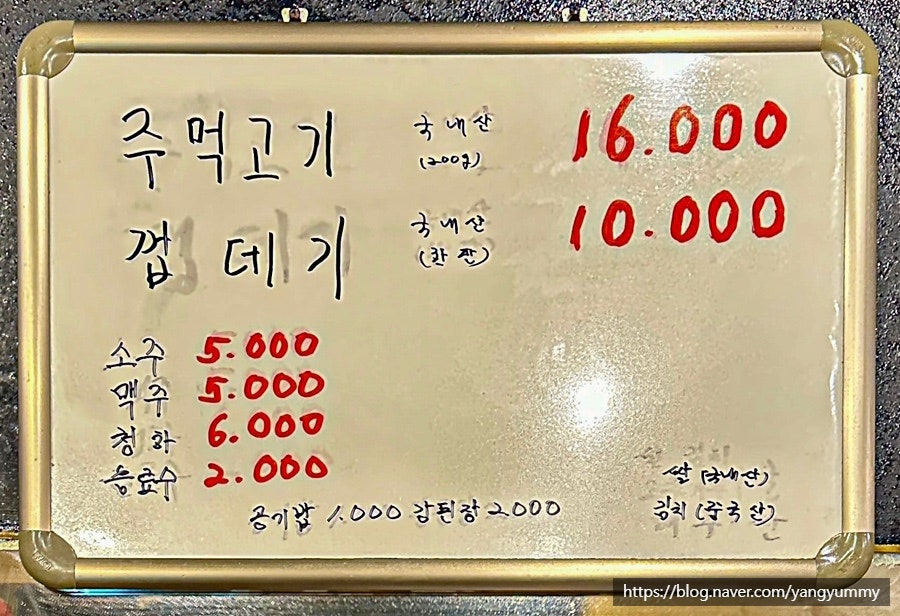 주먹고기 국내산 16.000
(200g)
껍데기 국내산 10.000
(한판)
소주 5.000
맥주 5.000
청하 6.000
음료수 2.000
공기밥 1.000 감된장 2000
쌀 (국내산)
김치 (중국산)
https://blog.naver.com/yangyummy